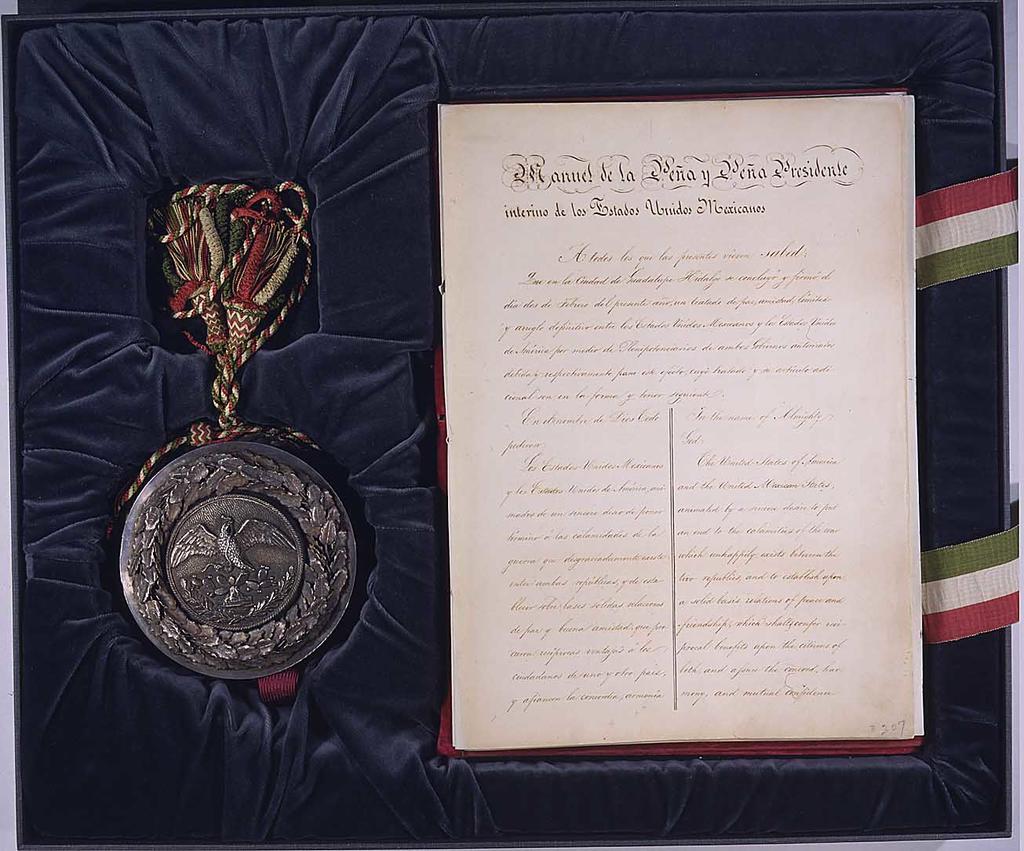 Manuel de la Peña y Peña Presidente
interino de los Estados Unidos Mexicanos
A todos los que las presentes vieren salud:
Que en la Ciudad de Guadalupe Hidalgo se concluyó y firmó el
dia dos de Febrero del presente año, un tratado de paz, amistad, limites
y arreglo definitivo entre los Estados Unidos Mexicanos y los Estados Unidos
de América por medio de Plenipotenciarios de ambos Gobiernos autorizados
debida y respectivamente para este efecto, cuyo tratado y su articulo adi-
cional son en la forma y tenor siguiente.
En el nombre de Dios Todo-
poderoso:
Los Estados Unidos Mexicanos
y los Estados Unidos de América, ani-
mados de un sincero deseo de poner
término á las calamidades de la
guerra que desgraciadamente existe
entre ambas repúblicas, y de esta-
blecer sobre bases sólidas relaciones
de paz y buena amistad, que pro-
curen reciprocas ventajas á los
ciudadanos de uno y otro pais,
y afiancen la concordia, armonia
In the name of Almighty
God:
The United States of America
and the United Mexican States,
animated by a sincere desire to put
an end to the calamities of the war
which unhappily exists between the
two republics, and to establish upon
a solid basis relations of peace and
friendship, which shall confer reci-
procal benefits upon the citizens of
both, and assure the concord, har-
mony, and mutual confidence
207